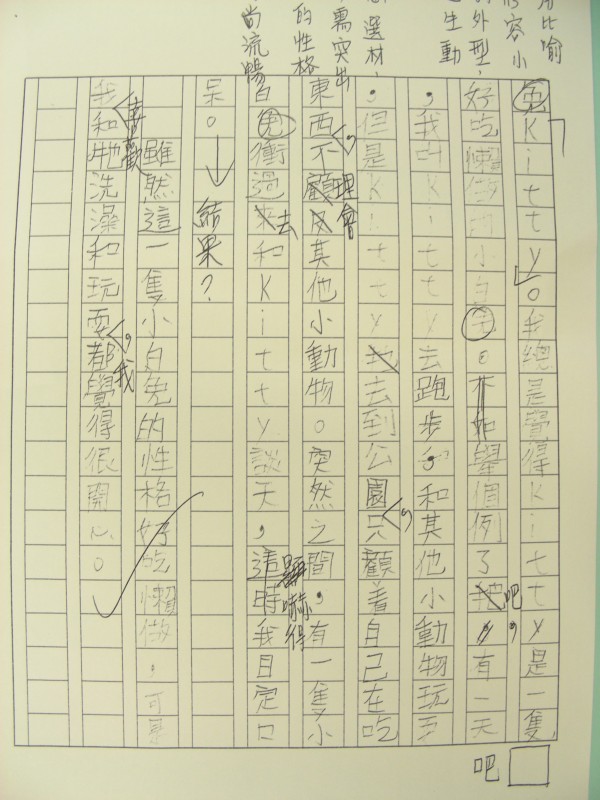 用比喻
容小
外型，
生動
選材，
需突出
的性格
尚流暢
兔Kitty。我總是覺得Kitty是一隻
好吃懶做 小白兔。不如舉個例子吧，有一天
，我叫Kitty去跑步，和其他小動物玩耍
，但是Kitty去到公園，只顧着自己在吃
東西，不理會其他小動物。突然之間，有一隻小
白兔衝過去和Kitty談天，這時嚇得我目定口
呆。
結果？
雖然這一隻小白兔的性格好吃懶做，可是
我喜歡和牠洗澡和玩耍，我都覺得很開心。
吧